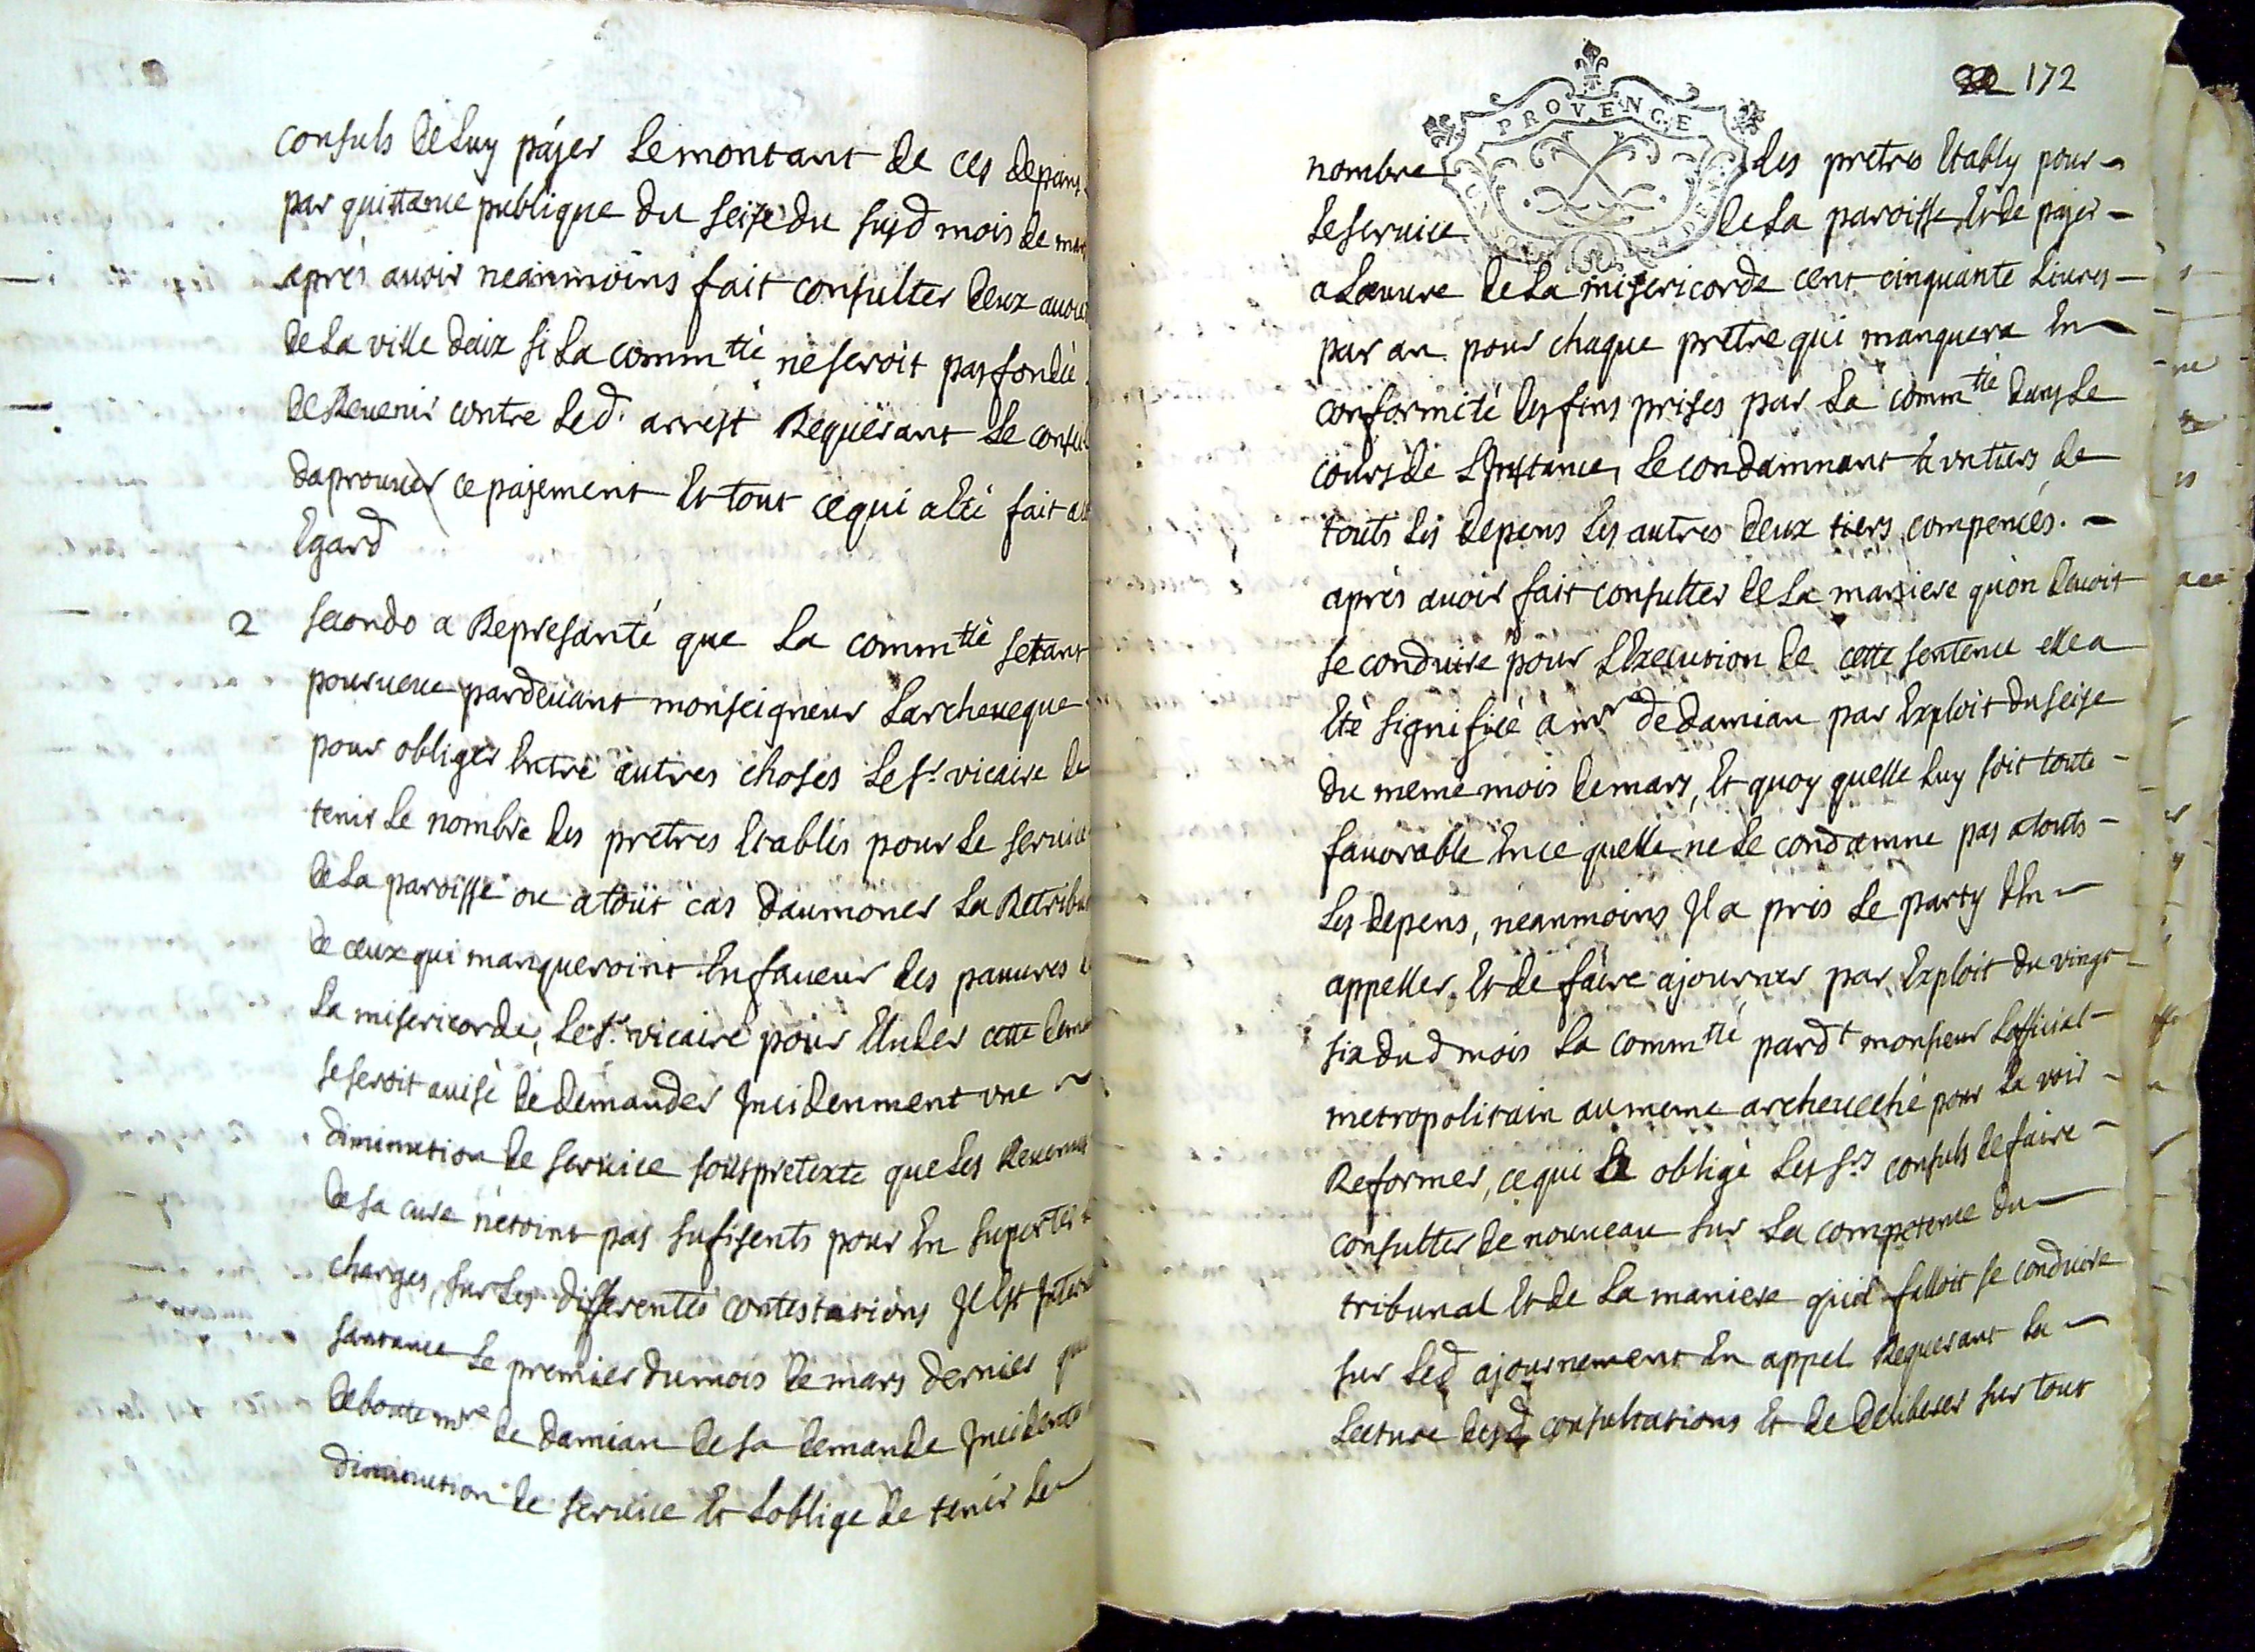 consuls de luy pajer le montant de ces depans
par quittance publique du seise du susd mois de mars
aprés avoir neanmoins fait consulter deux
de la ville daix si la comm.tié ne seroit pas fondéé
de Revenir contre led. arrest Requerant le
daprouver ce pajement et tout ce qui a été fait
Egard
2 secondo a Represanté que la comm.tié setant
pourveue pardevant monseigneur larcheveque
pour obliger entre autres choses le s.r vicaire de
tenir le nombre des pretres etablis pour le service
de la paroisse ou a tout cas daumoner la
de ceux qui manqueroint en faveur des pauvres
la misericorde, le s.r vicaire pour eluder cette
se seroit avisé de demander Incidenment une
diminution de service sous pretexte que les Revenus
de sa cure nétoint pas sufisents pour en suporter
charges, sur les differentes contestations Il est
santance le premier du mois de mars dernier qui
deboute m.re de damian de sa demande Incidente
diminution de service et loblige de tenir le
PROVENCE
172
nombre des pretres etably pour
le service de la paroisse et de pajer
a lœuvre de la misericorde cent cinquante livres
par an pour chaque pretre qui manquera en
conformité des fins prises par la comm.tié dans le
cours de linstance, le condamnant a un tiers de
touts les depens les autres deux tiers compencés.
aprés avoir fait consulter de la maniere quon devoit
se conduire pour lexecution de cette sentence elle a
eté signifiéé a m.r de damian par exploit du seise
du meme mois de mars, et quoy quelle luy soit toute
favorable en ce quelle ne le condamne pas a touts
les depens, neanmoins Il a pris le party den
appeller, et de faire ajourner par exploit du vingt
six dud mois la comm.tié pard.t monsieur lofficial
metropolitain au meme archeveché pour la voir
Reformer, ce qui a obligé les s.rs consuls de faire
consulter de nouveau sur la competence du
tribunal et de la maniere quil falloit se conduire
sur led ajournement en appel Requerant la
lecture desd consultations et de deliberer sur tout